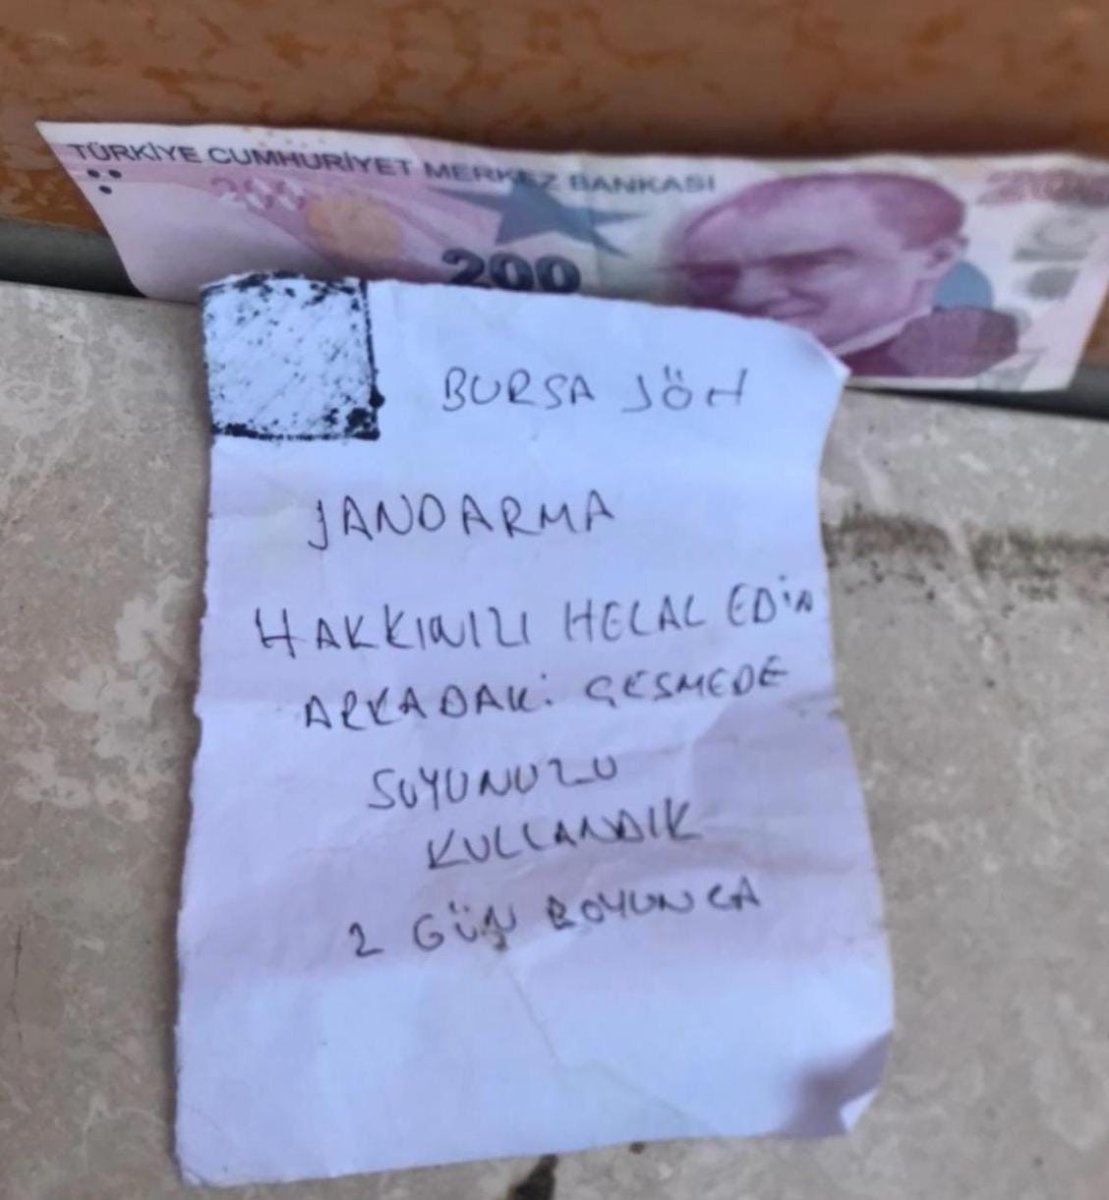 TÜRKİYE CUMHURİYET MERKEZ BANKASI
200
200
200
BURSA JÖH
JANDARMA
HAKKINIZI HELAL EDİN
ARKADAKİ ÇEŞMEDE
SUYUNUZU
KULLANDIK
2 GÜN BOYUNCA